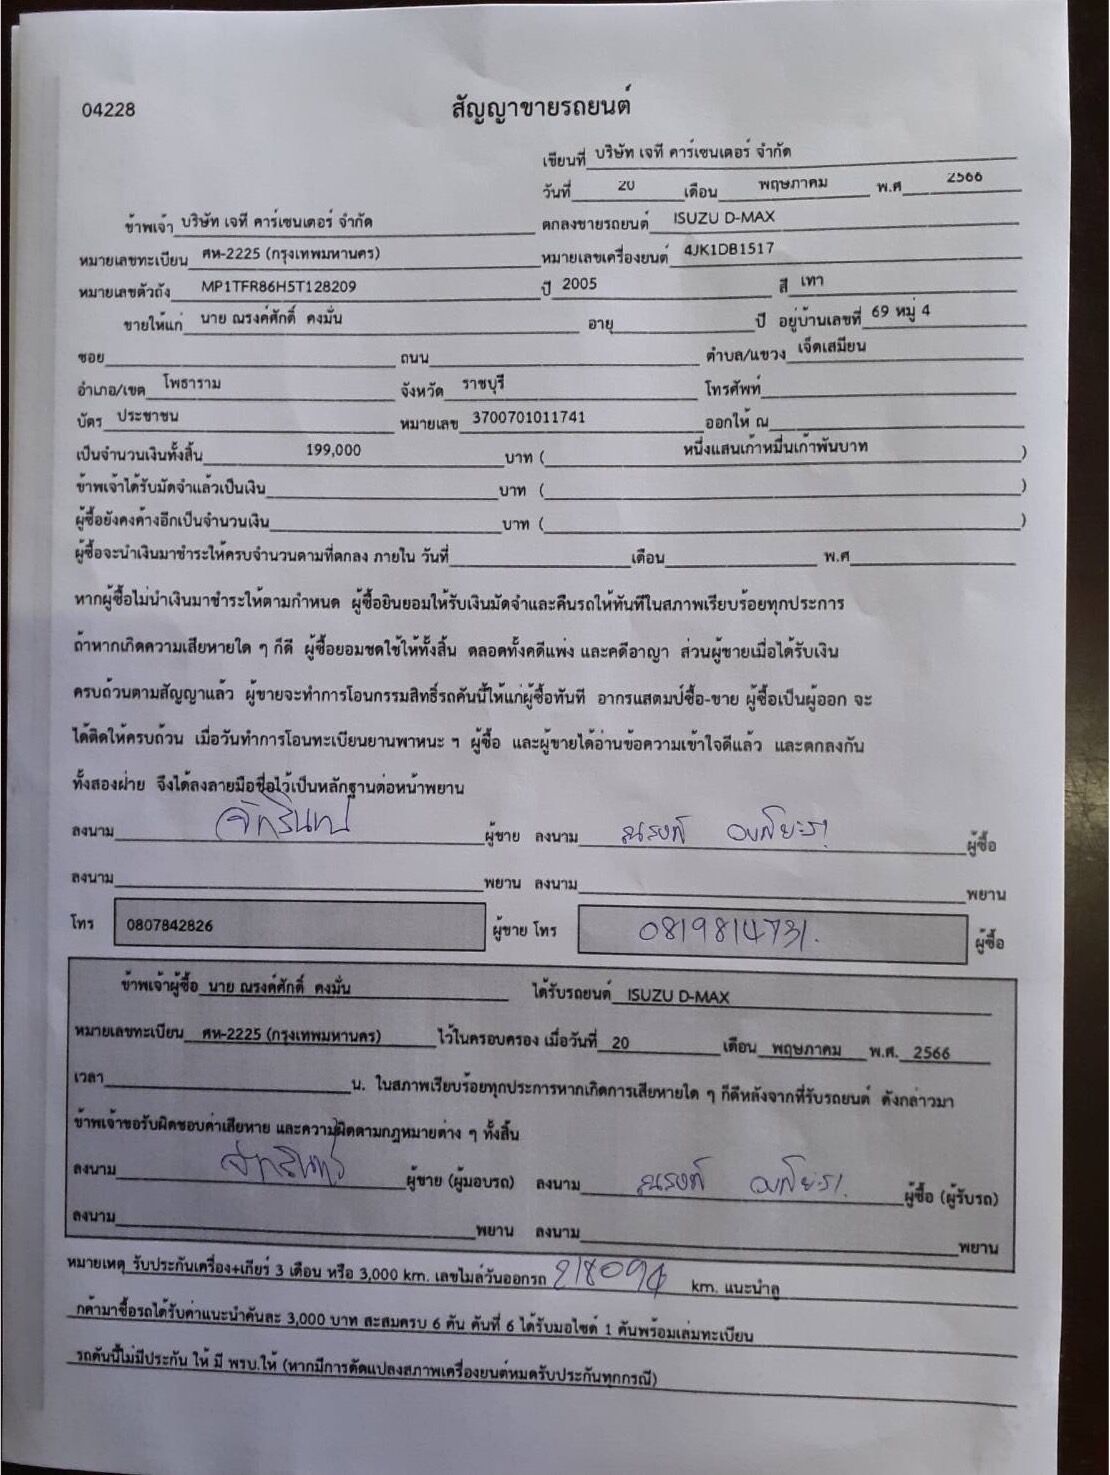 04228
สัญญาขายรถยนต์
เขียนที่ บริษัท เจที คาร์เซนเตอร์ จำกัด
วันที่ 20 เดือน พฤษภาคม พ.ศ 2566
ข้าพเจ้า บริษัท เจที คาร์เซนเตอร์ จำกัด ตกลงขายรถยนต์ ISUZU D-MAX
หมายเลขทะเบียน ศห-2225 (กรุงเทพมหานคร) หมายเลขเครื่องยนต์ 4JK1DB1517
หมายเลขตัวถัง MP1TFR86H5T128209 ปี 2005 สี เทา
ขายให้แก่ นาย ณรงค์ศักดิ์ คงมั่น อายุ ปี อยู่บ้านเลขที่ 69 หมู่ 4
ซอย ถนน ตำบล/แขวง เจ็ดเสมียน
อำเภอ/เขต โพธาราม จังหวัด ราชบุรี โทรศัพท์
บัตร ประชาชน หมายเลข 3700701011741 ออกให้ ณ
เป็นจำนวนเงินทั้งสิ้น 199,000 บาท ( หนึ่งแสนเก้าหมื่นเก้าพันบาท )
ข้าพเจ้าได้รับมัดจำแล้วเป็นเงิน บาท ( )
ผู้ซื้อยังคงค้างอีกเป็นจำนวนเงิน บาท ( )
ผู้ซื้อจะนำเงินมาชำระให้ครบจำนวนตามที่ตกลง ภายใน วันที่ เดือน พ.ศ
หากผู้ซื้อไม่นำเงินมาชำระให้ตามกำหนด ผู้ซื้อยินยอมให้รับเงินมัดจำและคืนรถให้ทันทีในสภาพเรียบร้อยทุกประการ
ถ้าหากเกิดความเสียหายใด ๆ ก็ดี ผู้ซื้อยอมชดใช้ให้ทั้งสิ้น ตลอดทั้งคดีแพ่ง และคดีอาญา ส่วนผู้ขายเมื่อได้รับเงิน
ครบถ้วนตามสัญญาแล้ว ผู้ขายจะทำการโอนกรรมสิทธิ์รถคันนี้ให้แก่ผู้ซื้อทันที อากรแสตมป์ซื้อ-ขาย ผู้ซื้อเป็นผู้ออก จะ
ได้ติดให้ครบถ้วน เมื่อวันทำการโอนทะเบียนยานพาหนะ ฯ ผู้ซื้อ และผู้ขายได้อ่านข้อความเข้าใจดีแล้ว และตกลงกัน
ทั้งสองฝ่าย จึงได้ลงลายมือชื่อไว้เป็นหลักฐานต่อหน้าพยาน
ลงนาม ผู้ขาย ลงนาม ผู้ซื้อ
ลงนาม พยาน ลงนาม พยาน
โทร 0807842826 ผู้ขาย โทร 0819814731. ผู้ซื้อ
ข้าพเจ้าผู้ซื้อ นาย ณรงค์ศักดิ์ คงมั่น ได้รับรถยนต์ ISUZU D-MAX
หมายเลขทะเบียน ศห-2225 (กรุงเทพมหานคร) ไว้ในครอบครอง เมื่อวันที่ 20 เดือน พฤษภาคม พ.ศ. 2566
เวลา น. ในสภาพเรียบร้อยทุกประการหากเกิดการเสียหายใด ๆ ก็ดีหลังจากที่รับรถยนต์ ดังกล่าวมา
ข้าพเจ้าขอรับผิดชอบค่าเสียหาย และความผิดตามกฎหมายต่าง ๆ ทั้งสิ้น
ลงนาม ผู้ขาย (ผู้มอบรถ) ลงนาม ผู้ซื้อ (ผู้รับรถ)
ลงนาม พยาน ลงนาม พยาน
หมายเหตุ รับประกันเครื่อง+เกียร์ 3 เดือน หรือ 3,000 km. เลขไมล์วันออกรถ 218094 km. แนะนำลู
กค้ามาซื้อรถได้รับค่าแนะนำคันละ 3,000 บาท สะสมครบ 6 คัน คันที่ 6 ได้รับมอไซด์ 1 คันพร้อมเล่มทะเบียน
รถคันนี้ไม่มีประกัน ให้ มี พรบ.ให้ (หากมีการดัดแปลงสภาพเครื่องยนต์หมดรับประกันทุกกรณี)